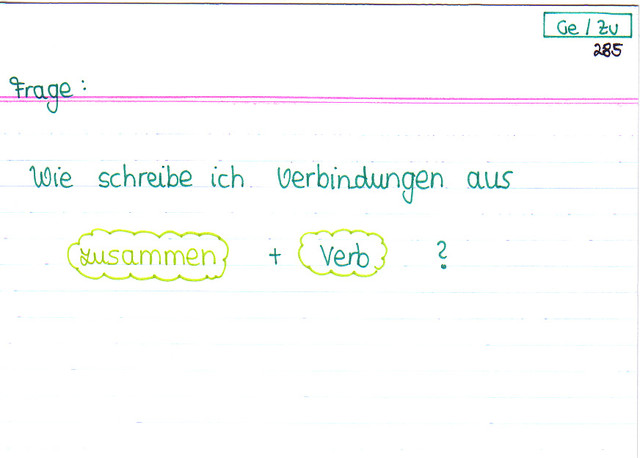 Ge / Zu
285
Frage:
Wie schreibe ich Verbindungen aus
zusammen + Verb ?